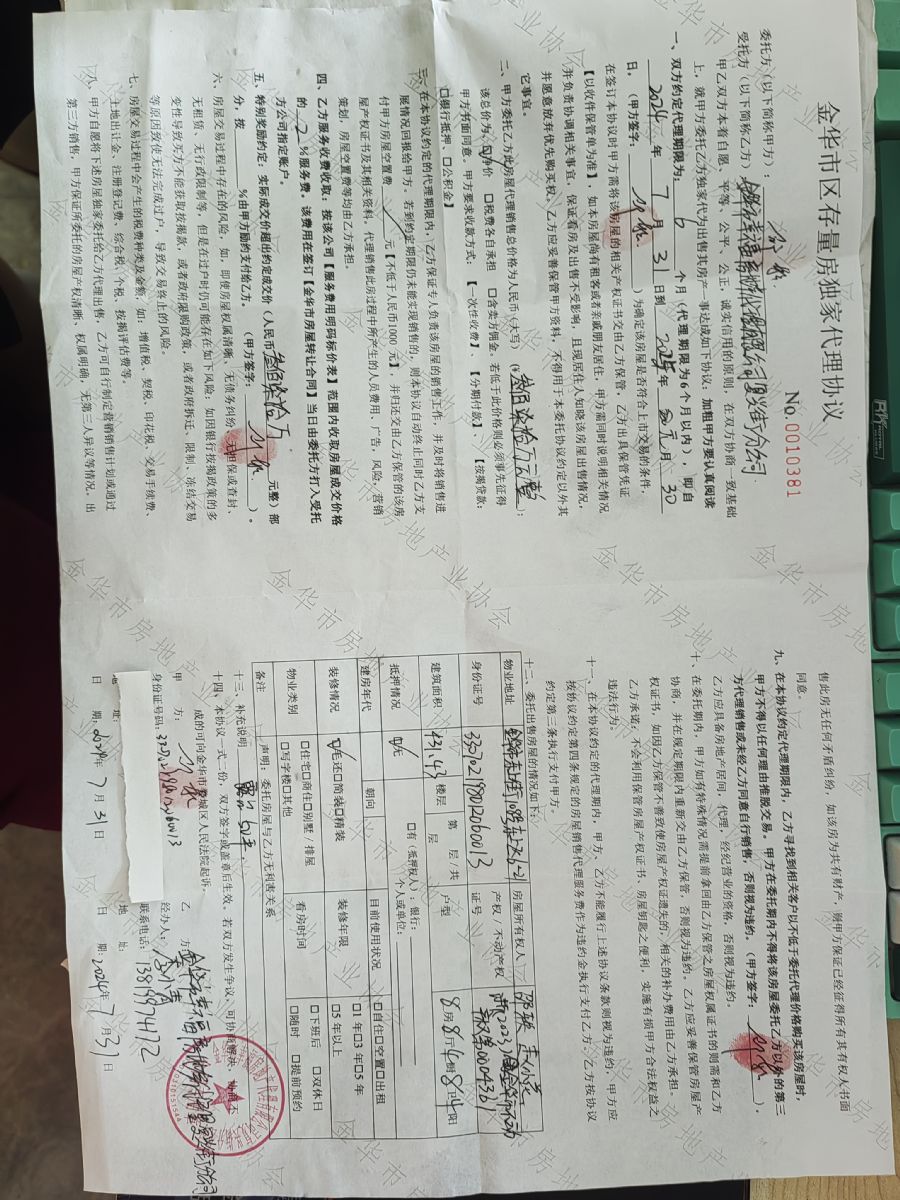 金华市区存量房独家代理协议
No.0010381
委托方(以下简称甲方):
受托方(以下简称乙方):
甲乙双方本着自愿、平等、公平、公正、诚实信用的原则,在双方协商一致基础
上,就甲方委托乙方独家代为出售其房产一事达成如下协议:加粗甲方要认真阅读
一、双方约定代理期限为: 6 个月(代理期限为6个月以内),即自
2024年 7 月 31 日到 2025年 元月 30
日。(甲方签字: )为确定该房屋是否符合上市交易的条件,
在签订本协议时甲方需将该房屋的相关产权证书交由乙方保管,乙方出具保管凭证
【以收件保管单为准】。如本房屋尚有租客或亲或朋友居住,甲方需同时说明相关情况
并负责协调相关事宜,保证看房及出售不受影响,且现居住人知晓该房屋出售情况,
并愿意放弃优先购买权。乙方应妥善保管甲方资料,不得用于本委托协议约定以外其
它事宜。
二、甲方委托乙方此房屋代理销售总价格为人民币(大写) 叁佰柒拾万元整;
该总价为:☑净价 □税费各自承担 □含卖方佣金。若低于此价格则必须事先征得
甲方书面同意。甲方要求收款方式:【一次性收费】、【分期付款】、【按揭贷款:
□银行抵押、□公积金】
三、在本协议约定的代理期限内,乙方保证专人负责该房屋的销售工作,并及时将销售进
展情况回报给甲方。若到约定期限仍未能实现销售的,则本协议自动终止同时乙方支
付甲方房屋空置费 / 元【不低于人民币1000元】,并归还交由乙方保管的该房
屋产权证书及其相关资料。代理销售此房过程中所产生的人员费用、广告、风险、营销
策划、房屋空置费等均由乙方承担。
四、乙方服务收费收取:按该公司【服务费用明码标价表】范围内收取房屋成交价格
的 2 %服务费。该费用在签订【金华市房屋转让合同】当日由委托方打入受托
方公司指定帐户。
五、特别奖励约定:实际成交价超出约定成交价(人民币叁佰柒拾万 元整)部
分,按 %由甲方励约支付给乙方。(甲方签字: )。
六、房屋交易过程中存在的风险,如:即使房屋权属清晰、无债务纠纷、无担保或查封、
无租赁、无行政限制等,但是在过户时仍可能存在如下风险:如因银行按揭政策的多
变性导致买方不能获取按揭款、或者政府限购政策,或者政府拆迁、限制、冻结交易
等原因致使无法完成过户,导致交易终止的风险。
七、房屋交易过程中会产生的税费种类及金额,如:增值税、契税、印花税、交易手续费、
土地出让金、注册登记费、综合税、个税、按揭评估费等。
八、甲方自愿将下述房屋独家委托给乙方代理出售,乙方可自行制定营销销售计划或通过
第三方销售,甲方保证所委托的房屋产权清晰、权属明确,无第三人异议等情况。出
售此房无任何矛盾纠纷,如该房为共有财产,则甲方保证已经征得所有其有权人书面
同意。
九、在本协议约定代理期限内,乙方寻找到相关客户以不低于委托代理价格购买该房屋时,
甲方不得以任何理由推脱交易。甲方在委托期内不得将该房屋委托乙方以外的第三
方代理销售或未经乙方同意自行销售,否则视为违约。(甲方签字: )。
乙方应具备房地产居间、代理、经纪营业的资格,否则视为违约。
十、在委托期内,甲方如有特殊情况需提前拿回由乙方保管之房屋权属证书的则需和乙方
协商,并在规定期限内重新交由乙方保管,否则视为违约。乙方应妥善保管房屋产
权证书,如因乙方保管不善致使房屋产权证遗失的,相关的补办费用由乙方承担。
乙方承诺:不会利用保管房屋产权证书、房屋钥匙之便利,实施有损甲方合法权益之
违法行为。
十一、在本协议约定的代理期内,甲方、乙方不能履行上述协议条款则视为违约,甲方应
按协议约定第四条规定的房屋销售代理服务费作为违约金执行支付乙方。乙方按协议
约定第三条执行支付甲方。
十二、委托出售房屋的情况如下:
物业地址 房屋所有权人
身份证号 330702198002060013 产权、不动产权证号 0004361
建筑面积 431.43 楼层 第 层/共 层 户型 8房8厅4卫8阳
抵押情况 ☑无 □有(抵押权人):银行: 个人或单位:
建房年代 朝向 目前使用状况 □自住□空置□出租
装修情况 ☑毛还□简装□精装 装修年限 □1年□3年□5年 □5年以上
物业类别 □住宅□商住□别墅/排屋 □写字楼□其他 看房时间 □下班后 □双休日 □随时 □提前预约
备注 声明:委托房屋与乙方无利害关系
十三、补充说明
十四、本协议一式二份,双方签字或盖章后生效。若双方发生争议,可协商解决,协商不
成的可向金华市婺城区人民法院起诉。
甲 方: 乙 方:
身份证号码: 经办人:
联系电话:
地 址: 地 址:
日 期:2024年 7 月 31 日 日 期:2024年 7 月 31 日
金华市房地产业协会